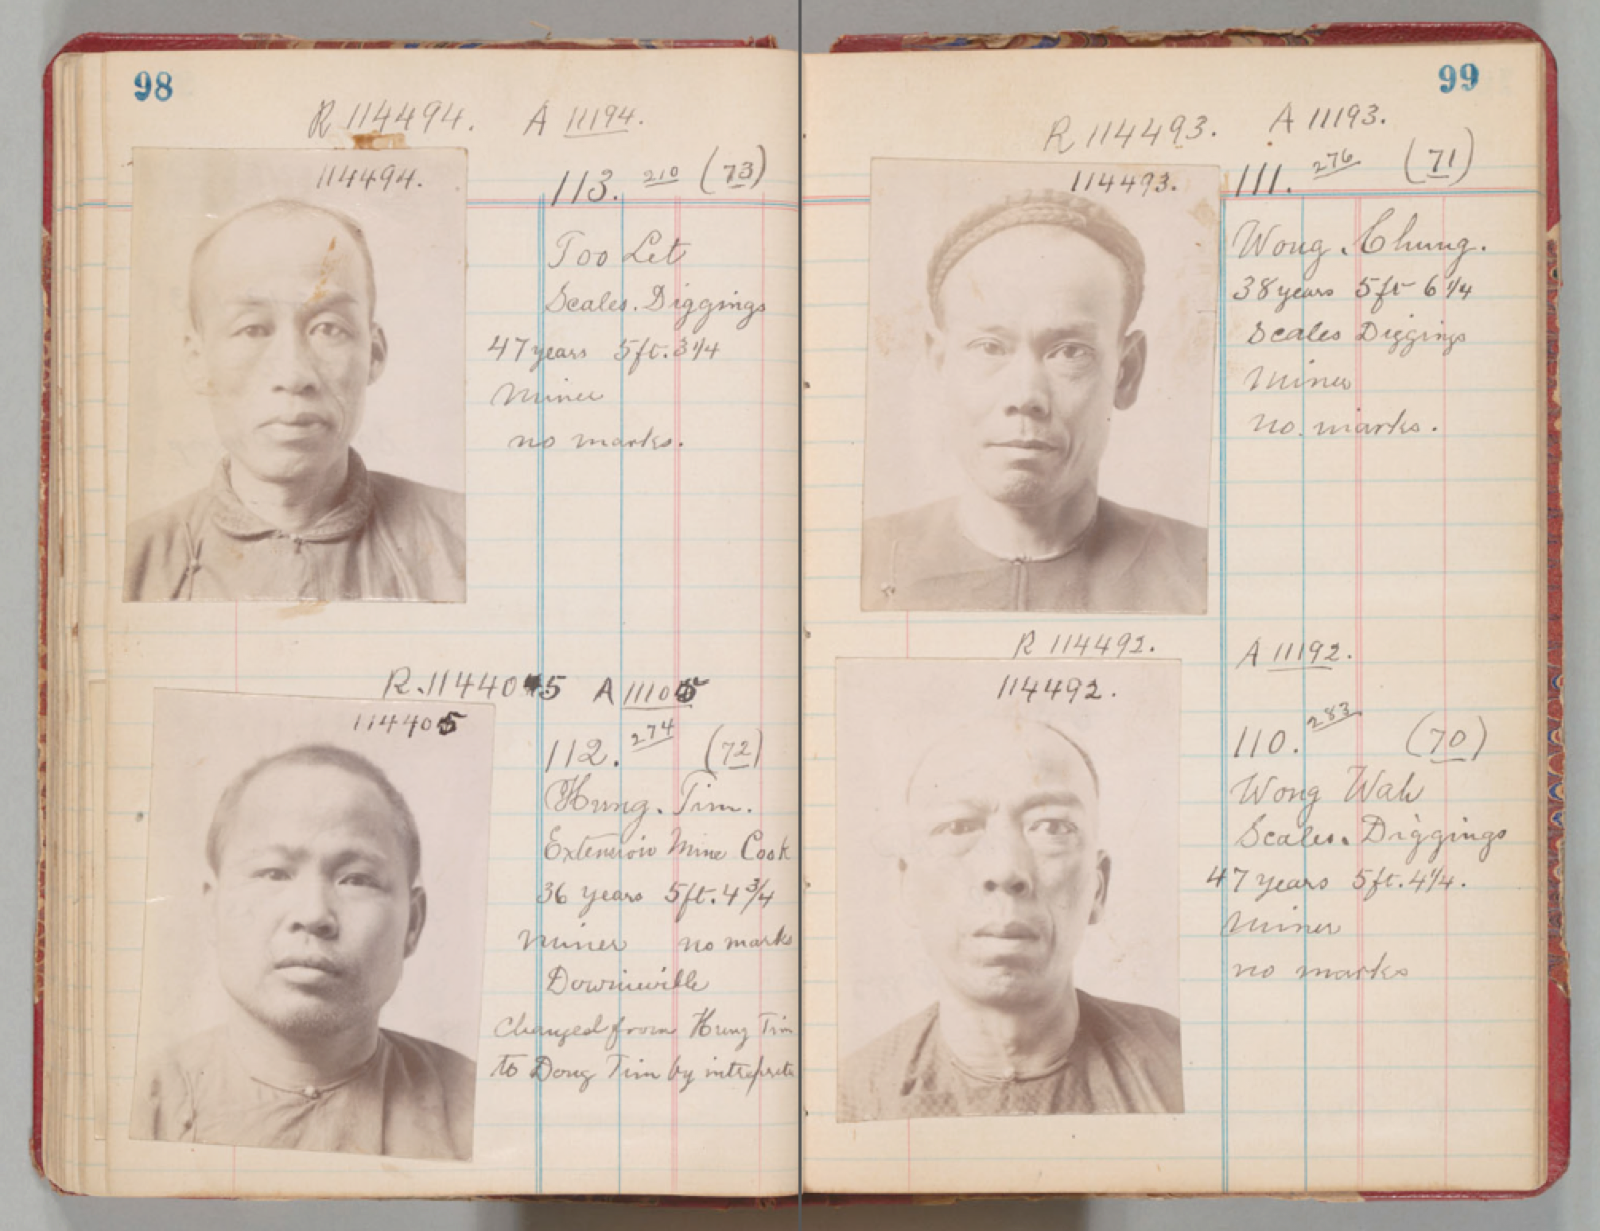 98
R 114494. A 11194.
114494.
113. 210 (73)
Too Let
Scales. Diggings
47 years 5ft. 3 1/4
Miner
no marks.
R. 114405 A 11105
114405
112. 274 (72)
Hung. Tim.
Extension Mine Cook
36 years 5ft. 4 3/4
Miner no marks
Downieville
Changed from Hung Tim
to Dong Tim by intreprete
99
R 114493. A 11193.
114493.
111. 276 (71)
Wong. Chung.
38 years 5ft 6 1/4
Scales Diggings
Miner
no. marks.
R 114492. A 11192.
114492.
110. 283 (70)
Wong Wah
Scales. Diggings
47 years 5ft. 4 1/4.
Miner
no marks